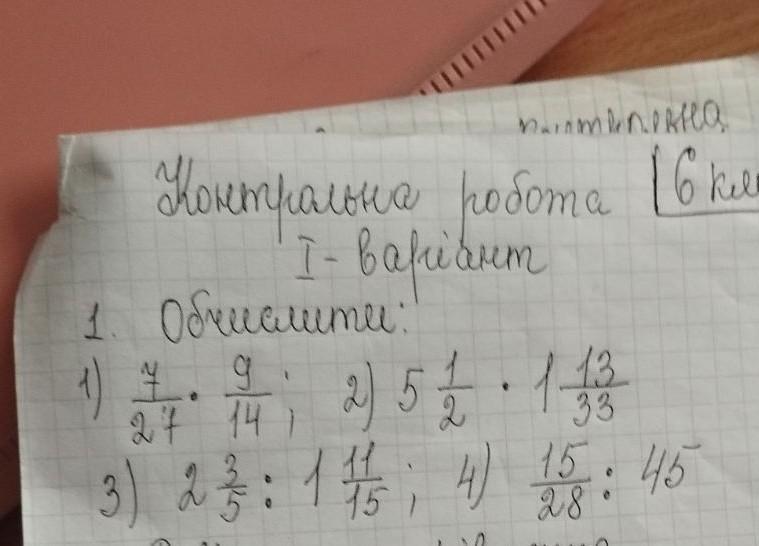 Контрольна робота 6 кл
I - варіант
1. Обчислити:
1) 7/27 · 9/14; 2) 5 1/2 · 1 13/33
3) 2 3/5 : 1 11/15; 4) 15/28 : 45